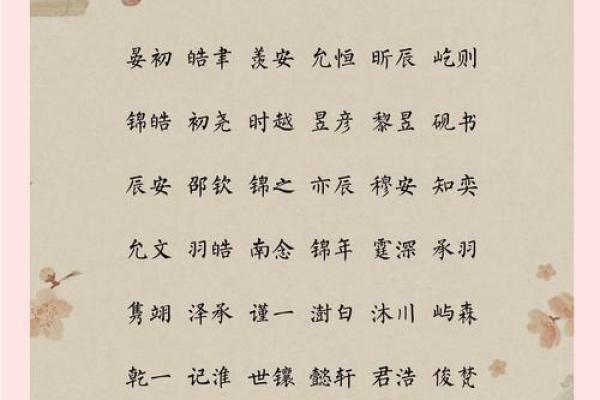 晏初 皓聿 羡安 允恒 昕辰 屹则
锦皓 初尧 时越 昱彦 黎昱 砚书
辰安 邵钦 锦之 亦辰 穆安 知奕
允文 羽皓 南念 锦年 霆深 承羽
隽翊 泽承 谨一 澍白 沐川 屿森
乾一 记淮 世镶 懿轩 君浩 俊梵